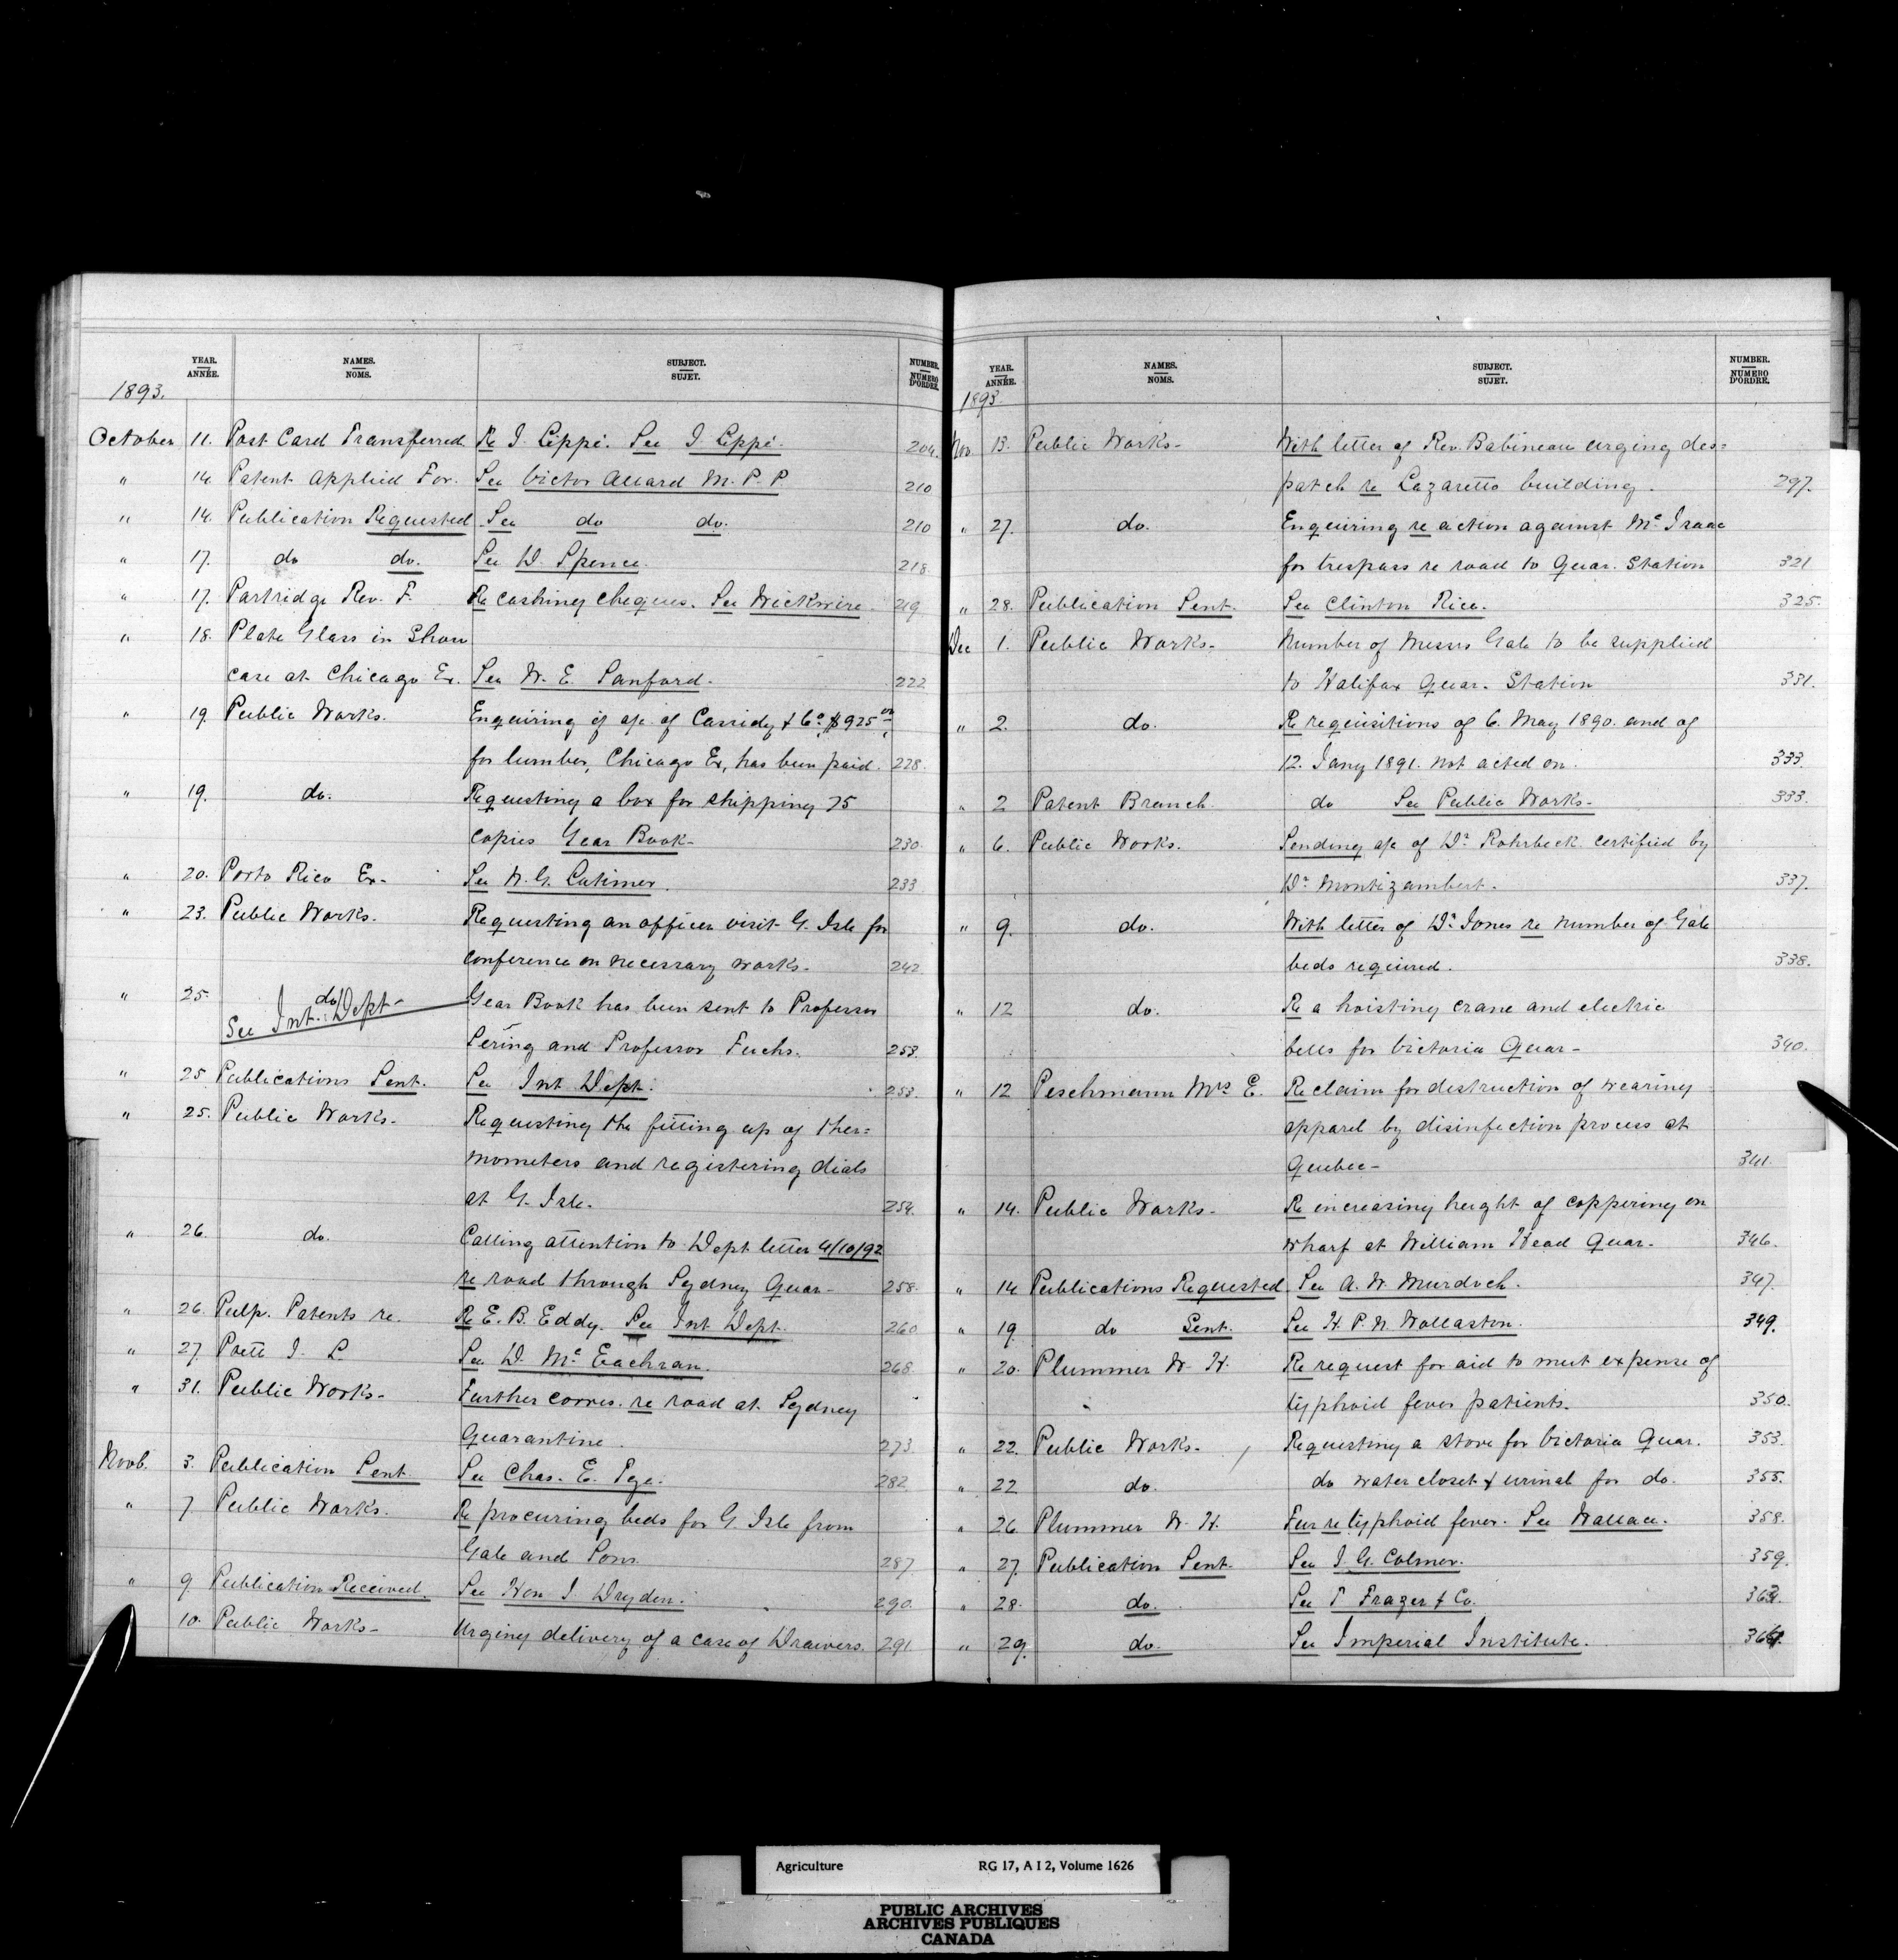 YEAR. NAMES. SUBJECT. NUMBER.
ANNÉE. NOMS. SUJET. NUMERO D'ORDRE.
1893.
October 11. Post Card Transferred Re J. Lippé. See J. Lippé. 204.
" 14. Patent Applied For. See Victor Allard M.P.P. 210
" 14. Publication Requested See do do. 210
" 17. do do. See D. Spence. 218.
" 17. Partridge Rev. F. Re cashing cheques. See Wickwire. 219
" 18. Plate Glass in Show
case at Chicago Ex. See W. E. Sanford. 222
" 19. Public Works. Enquiring if a/c of Cassidy & Co. $925.00
for lumber, Chicago Ex, has been paid. 228.
" 19. do. Requesting a box for shipping 75
copies Year Book- 230.
" 20. Porto Rico Ex- See W. G. Latimer. 233
" 23. Public Works. Requesting an officer visit G. Isle for
conference on necessary works. 242
" 25. do Year Book has been sent to Professor
See Int. Dept-
Sering and Professor Fuchs. 253.
" 25 Publications Sent. See Int Dept. 253.
" 25. Public Works- Requesting the fitting up of ther=
mometers and registering dials
at G. Isle. 254.
" 26. do. Calling attention to Dept letter 4/10/92
re road through Sydney Quar- 258.
" 26. Pulp. Patents re. Re E. B. Eddy. See Int Dept. 260
" 27. Poett J. L. See D. McEachran. 268.
" 31. Public Works- Further corres. re road at Sydney
Quarantine. 273.
Novb. 3. Publication Sent. See Chas. E. Pge. 282
" 7. Public Works. Re procuring beds for G. Isle from
Gale and Sons. 287.
" 9. Publication Received. See Hon J. Dryden. 290.
10. Public Works- Urging delivery of a case of Drawers. 291.
YEAR. NAMES. SUBJECT. NUMBER.
ANNÉE. NOMS. SUJET. NUMERO D'ORDRE.
1893.
Nov. 13. Public Works- With letter of Rev. Babineau urging des=
patch re Lazaretto building. 297.
" 27. do. Enquiring re action against McIsaac
for trespass re road to Quar. Station 321
" 28. Publication Sent. See Clinton Rice. 325.
Dec 1. Public Works- Number of Messrs Gale to be supplied
to Halifax Quar. Station 331.
" 2. do. Re requisitions of 6. May 1890. and of
12. Jany 1891. not acted on. 333.
" 2 Patent Branch. do See Public Works- 333.
" 6. Public Works. Sending a/c of Dr. Rohrbeck certified by
Dr. Montizambert. 337.
" 9. do. With letter of Dr. Jones re number of Gale
beds required. 338.
" 12 do. Re a hoisting crane and electric
bells for Victoria Quar- 340.
" 12 Peschmann Mrs E. Re claim for destruction of wearing
apparel by disinfection process at
Quebec- 341.
" 14. Public Works- Re increasing height of coppering on
wharf at William Head Quar. 346.
" 14 Publications Requested See A. W. Murdoch. 347.
" 19 do Sent. See H. P. N. Wollaston. 349.
" 20. Plummer W. H. Re request for aid to meet expense of
typhoid fever patients. 350.
" 22. Public Works- Requesting a stove for Victoria Quar. 353.
" 22 do. do water closet & urinal for do. 355.
" 26. Plummer W. H. Fur re typhoid fever. See Wallace. 358.
" 27. Publication Sent. See J. G. Colmer. 359.
" 28. do. See T Frazer & Co.
" 29. do. See Imperial Institute.
Agriculture RG 17, A I 2, Volume 1626
PUBLIC ARCHIVES
ARCHIVES PUBLIQUES
CANADA